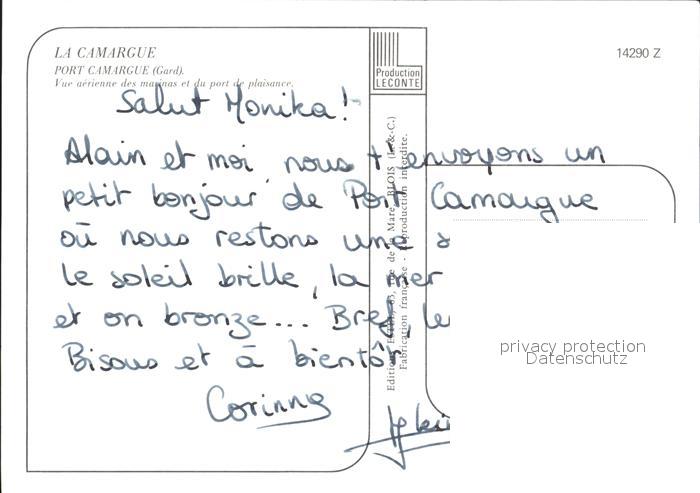 LA CAMARGUE
PORT CAMARGUE (Gard).
Vue aérienne des marinas et du port de plaisance.
Production
LECONTE
14290 Z
Salut Monika !
Alain et moi, nous t'envoyons un
petit bonjour de Port Camargue
où nous restons une
le soleil brille, la mer
et on bronze... Bref, le
Bisous et à bientôt
Corinne
Fabrication française - Reproduction interdite.
privacy protection
Datenschutz